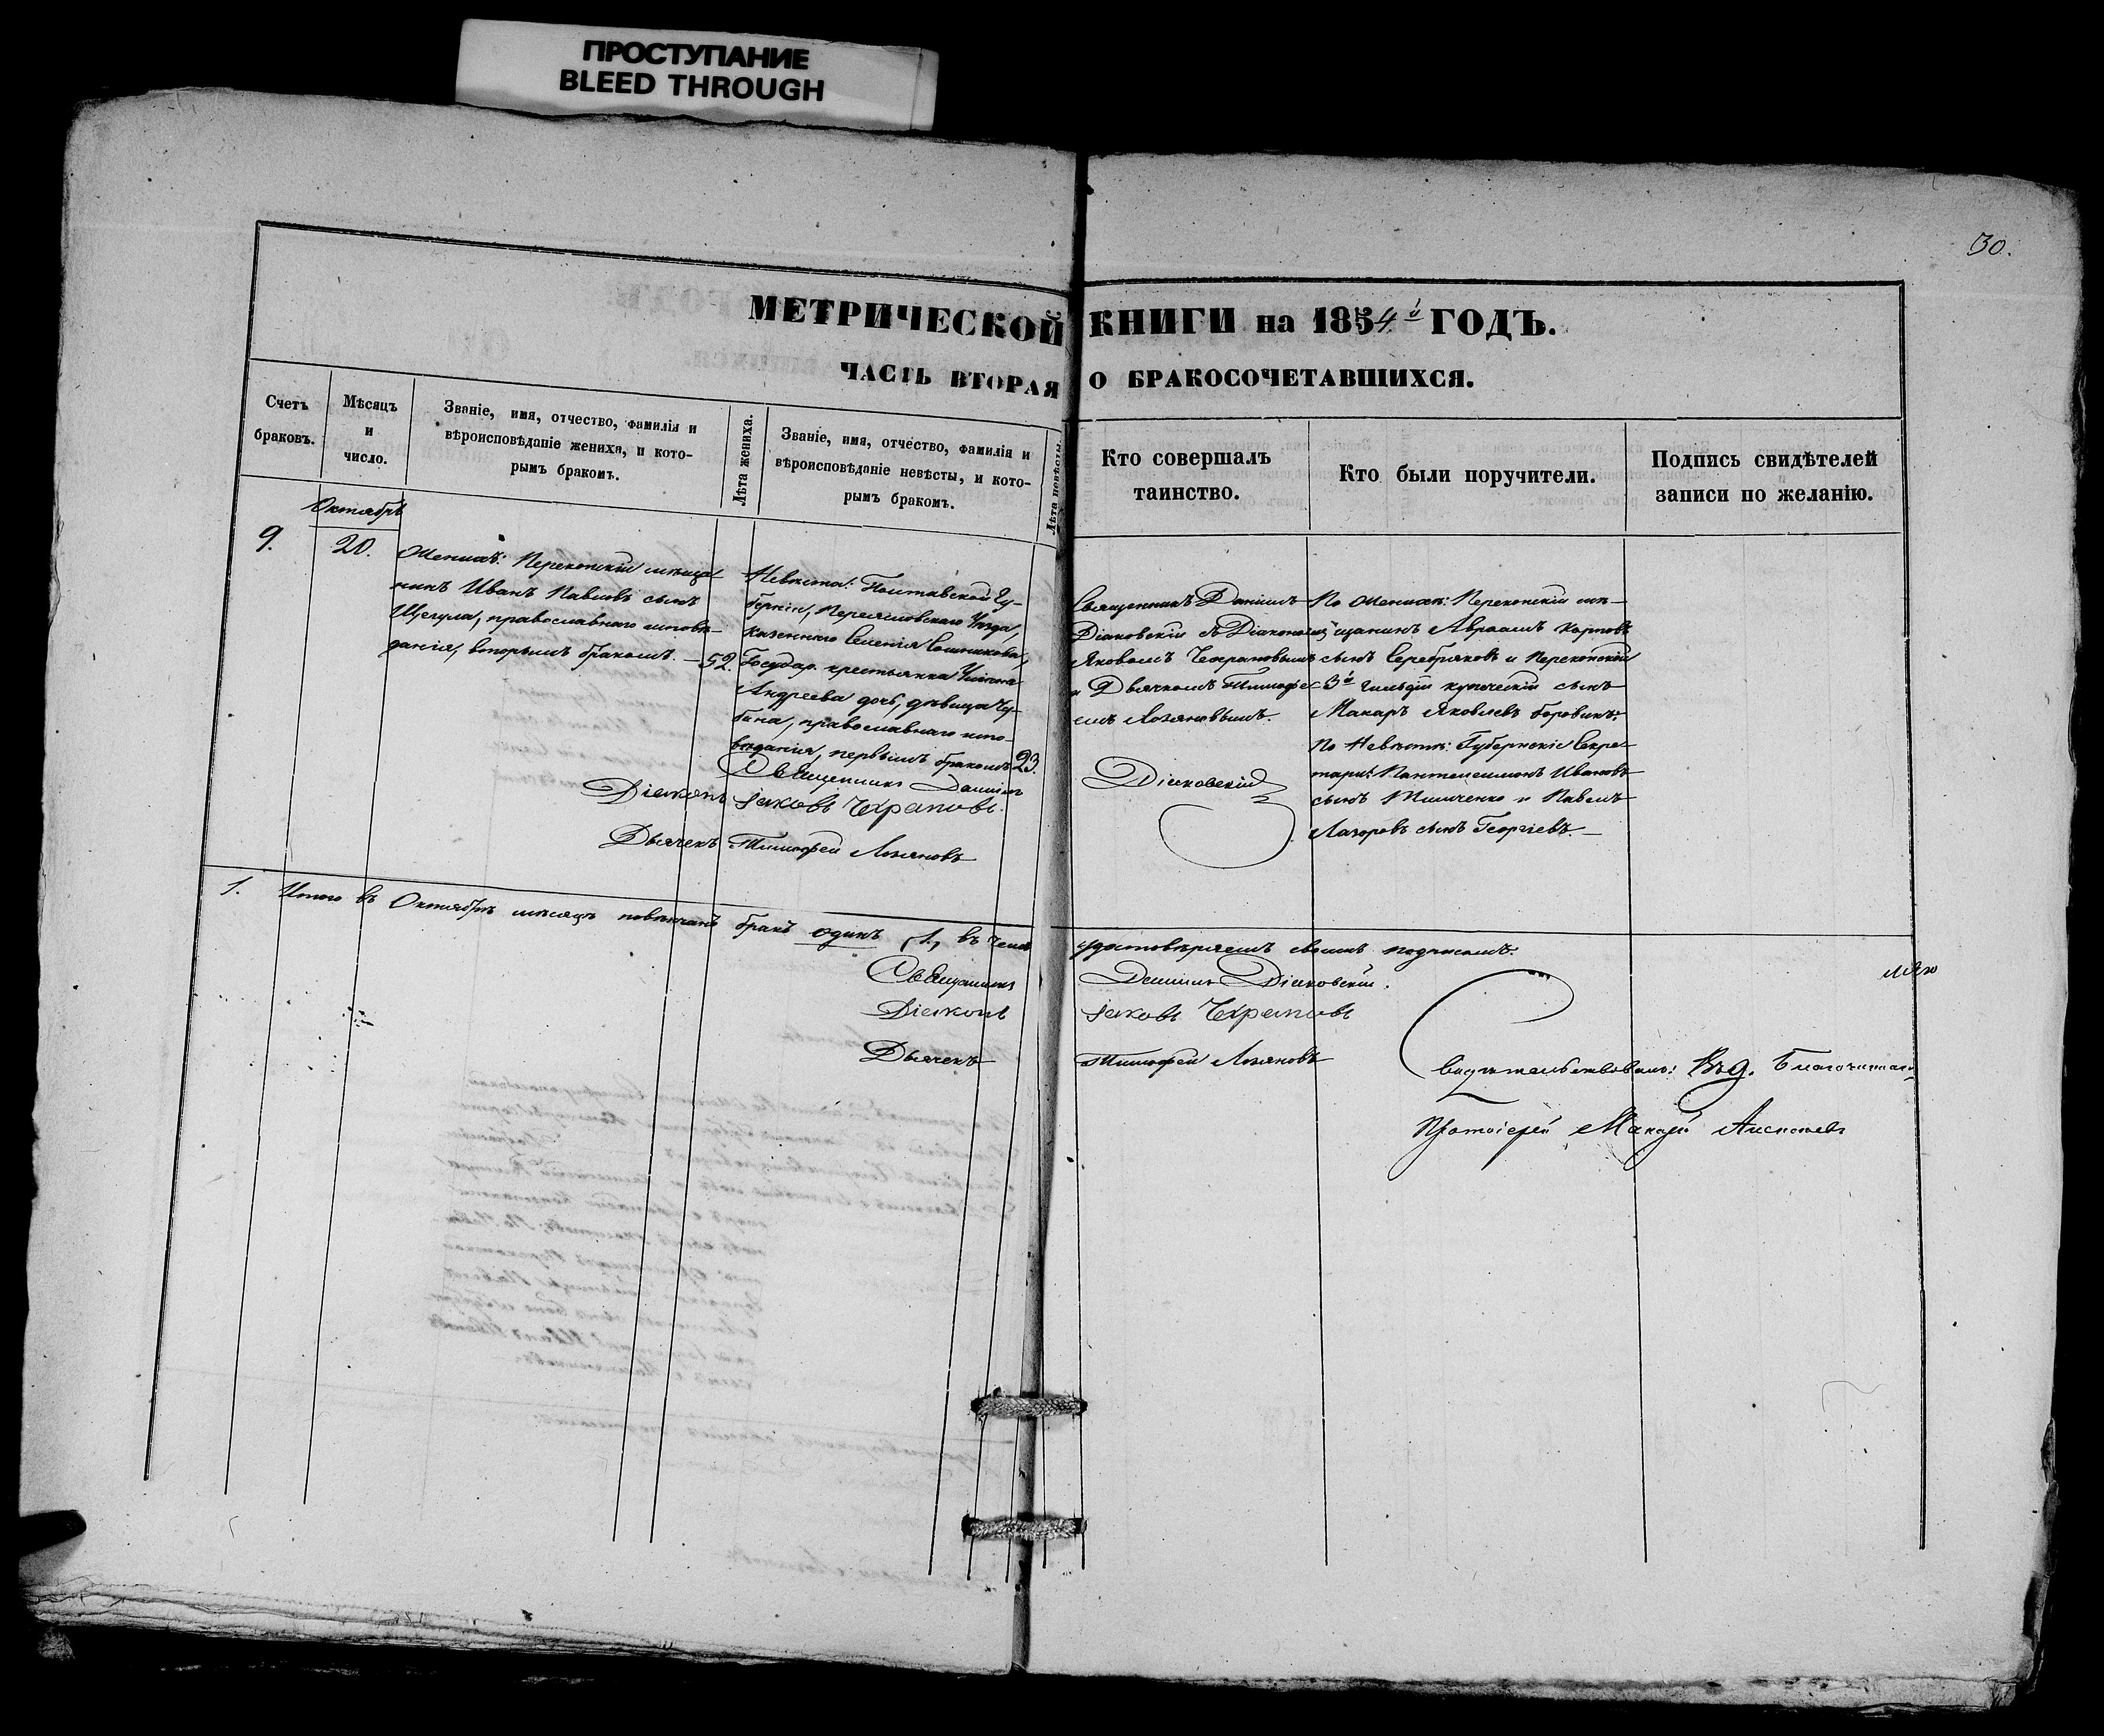 ПРОСТУПАНИЕ
BLEED THROUGH
30.
МЕТРИЧЕСКОЙ КНИГИ на 1854й ГОДЪ.
ЧАСТЬ ВТОРАЯ О БРАКОСОЧЕТАВШИХСЯ.
Счетъ
браковъ.
Мѣсяцъ
и
число.
Званіе, имя, отчество, фамилія и
вѣроисповѣданіе жениха, и кото-
рымъ бракомъ.
Лѣта жениха.
Званіе, имя, отчество, фамилія и
вѣроисповѣданіе невѣсты, и кото-
рымъ бракомъ.
Лѣта невѣсты.
Кто совершалъ
таинство.
Кто были поручители.
Подпись свидѣтелей
записи по желанію.
Октябрь
9.
20.
Женихъ: Перекопскій мѣща-
нинъ Иванъ Павловъ сынъ
Щегула, православнаго исповѣ-
данія, вторымъ бракомъ. —
52.
Невѣста: Полтавской Гу-
берніи, Переяславскаго Уѣзда,
казеннаго Селенія
Государ. крестьянка
Андреева дочь, дѣвица Чу-
бина, православнаго испо-
вѣданія, первымъ бракомъ
23.
Священникъ Даніилъ
Діаконъ Іаковъ Чехрановъ.
Дьячекъ Тимофей Лозановъ
Священникъ Даніилъ
Діаковскій съ Діакономъ
Яковомъ Чехрановымъ
и Дьячкомъ Тимофе-
емъ Лозановымъ.
Діаковскій
По Женихѣ: Перекопскій мѣ-
щанинъ Авраамъ Карповъ
сынъ Серебряковъ и Перекопскій
3й гильдіи купеческій сынъ
Макаръ Яковлевъ Боровикъ;
По Невѣстѣ: Губернскіе Секре-
тари: Пантелеимонъ Ивановъ
сынъ Тимченко и Павелъ
Лазоровъ сынъ Георгіевъ. —
1. Итого въ Октябрѣ мѣсяцѣ повѣнчанъ бракъ одинъ (1.) въ чемъ удостовѣряемъ своимъ подписомъ:
Священникъ Даніилъ Діаковскій.
Діаконъ Іаковъ Чехрановъ
Дьячекъ Тимофей Лозановъ
Свидѣтельствовалъ: Благочиннаго
Протоіерей Макарій